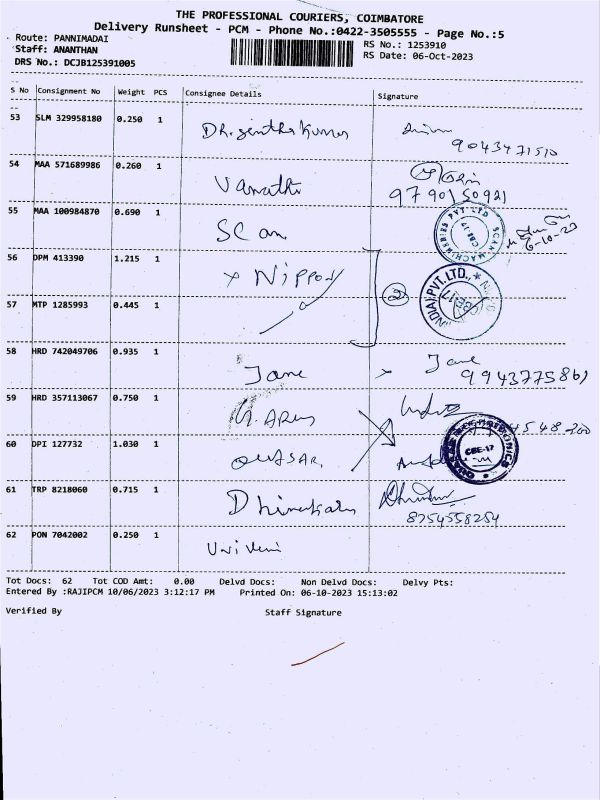 THE PROFESSIONAL COURIERS, COIMBATORE
Delivery Runsheet - PCM - Phone No.:0422-3505555 - Page No.:5
Route: PANNIMADAI
RS No.: 1253910
Staff: ANANTHAN
RS Date: 06-Oct-2023
DRS No.: DCJB125391005
S No Consignment No Weight PCS Consignee Details Signature
53 SLM 329958180 0.250 1
9043471510
54 MAA 571689986 0.260 1 Vanathi
9790150921
55 MAA 100984870 0.690 1 Scan
SCAN MACHINERIES PVT LTD CBE-17
6-10-23
56 DPM 413390 1.215 1 x NIPPON
2
(INDIA) PVT. LTD., CBE-17
57 MTP 1285993 0.445 1
58 HRD 742049706 0.935 1 Jane Jane
9943775861
59 HRD 357113067 0.750 1
60 DPI 127732 1.030 1 QUASAR
CBE-17
61 TRP 8218060 0.715 1
8754558254
62 PON 7042002 0.250 1
Tot Docs: 62 Tot COD Amt: 0.00 Delvd Docs: Non Delvd Docs: Delvy Pts:
Entered By :RAJIPCM 10/06/2023 3:12:17 PM Printed On: 06-10-2023 15:13:02
Verified By Staff Signature